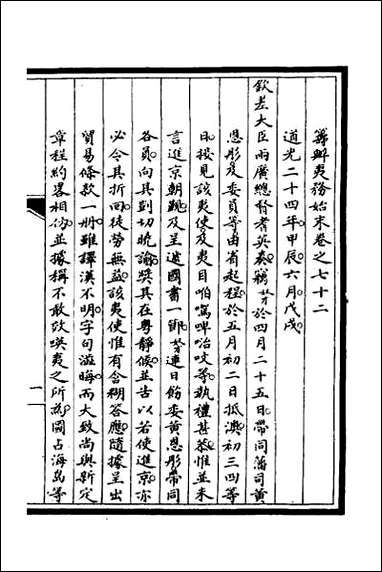 籌辦夷務始末卷之七十二
道光二十四年甲辰六月戊戌
欽差大臣兩廣總督耆英奏竊於四月二十五日帶同藩司黃
恩彤及委員等由省起程於五月初二日抵澳初三四等
日接見該夷使及夷目咱嘶啤治咬等執禮甚恭惟並未
言進京朝覲及呈遞國書一節連日飭委黃恩彤帶同
各員向其剴切曉諭獎其在粵靜候並告以若使進京亦
必令其折回徒勞無益該夷使惟有含糊答應隨據呈出
貿易條款一冊雖譯漢不明字句澀晦而大致尚與新定
章程約畧相仿並據稱不敢效𠸄夷之所為圖占海島等
一